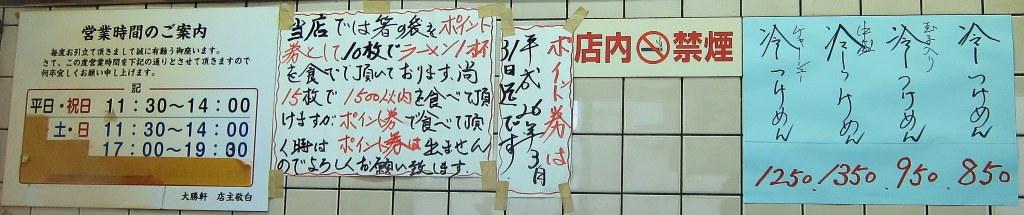 営業時間のご案内
毎度お引立て頂きまして誠に有難う御座います。
さて、この度営業時間を下記の通りとさせて頂きますので
何卒宜しくお願い申し上げます。
記
平日・祝日 11:30〜14:00
土・日 11:30〜14:00
17:00〜19:30
大勝軒 店主敬白
当店では箸の袋をポイント
券として10枚でラーメン1杯
を食べて頂いております。尚
15枚で1500以内を食べて頂
けますがポイント券で食べて頂
く時はポイント券は出ません
のでよろしくお願い致します。
ポイント券は
平成26年3月
31日迄です
店内 禁煙
冷つけめん
850
玉子入り
冷つけめん
950
中盛
冷つけめん
1350
チャーシュー
冷つけめん
1250